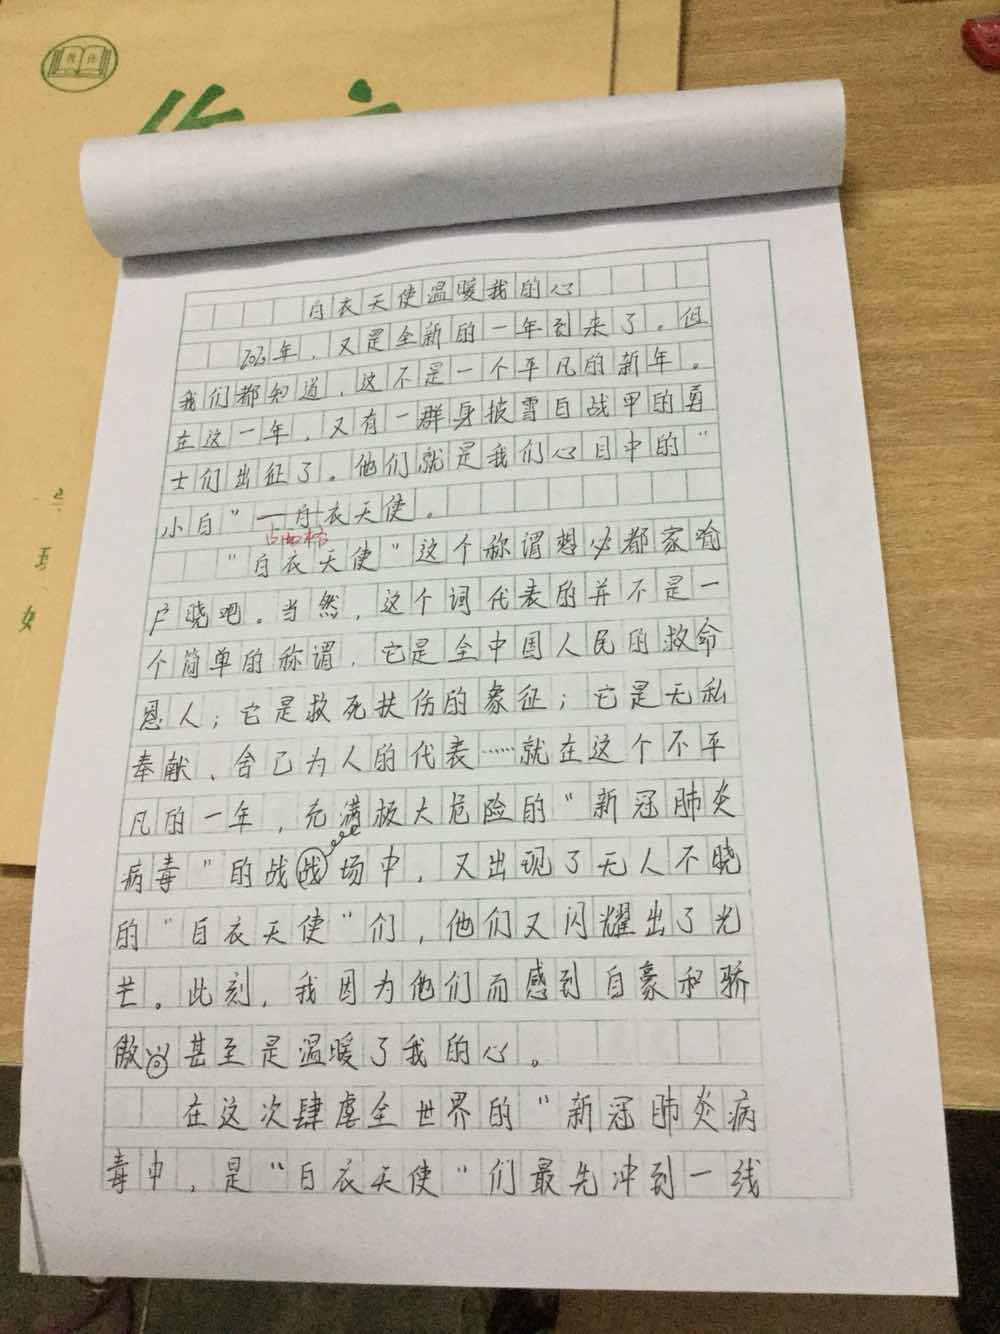 作文
白衣天使温暖我的心
2020年，又是全新的一年到来了。但
我们都知道，这不是一个平凡的新年。
在这一年，又有一群身披雪白战甲的勇
士们出征了。他们就是我们心目中的“
小白”一白衣天使。
占两格
“白衣天使”这个称谓想必都家喻
户晓吧。当然，这个词代表的并不是一
个简单的称谓，它是全中国人民的救命
恩人；它是救死扶伤的象征；它是无私
奉献、舍己为人的代表……就在这个不平
凡的一年，充满极大危险的“新冠肺炎
病毒”的战战场中，又出现了无人不晓
的“白衣天使”们，他们又闪耀出了光
芒。此刻，我因为他们而感到自豪和骄
傲 甚至是温暖了我的心。
在这次肆虐全世界的“新冠肺炎病
毒中，是“白衣天使“们最先冲到一线